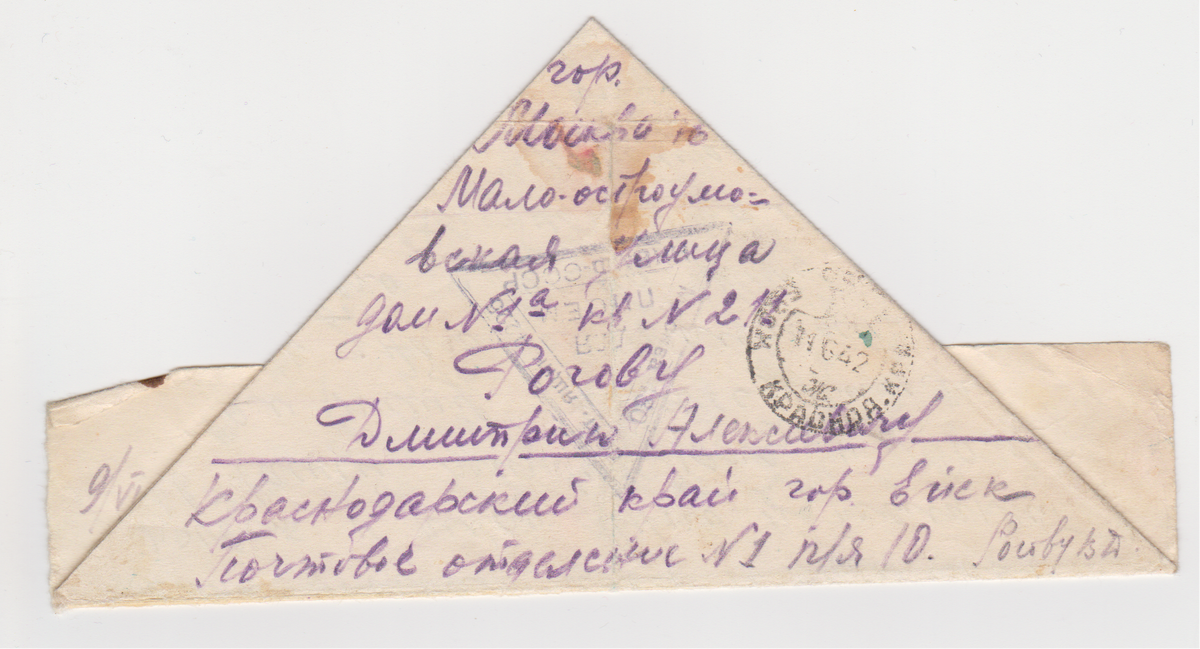 гор.
Москва
Мало-остроумо-
вская улица
дом № 1а кв № 211
Рогову
Дмитрию Алексеевичу
Краснодарский край гор. Ейск
Почтовое отделение №1 п/я 10.
9/VI
11 6 42
КРАСНОД. КРА